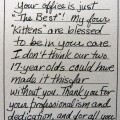 Your office is just
"The Best"! My four
"Kittens" are blessed
to be in your care.
I don't think our two
17-year olds could have
made it thisfar
without you. Thank you for
your professionalism and
dedication, and for all you